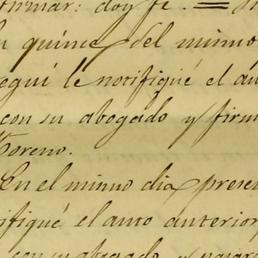 firmar: doy fe. =
quince del mismo
seguí le notifiqué el au
con su abogado y firm
Moreno.
En el mismo dia presen
tifiqué el auto anterior
con su abogado